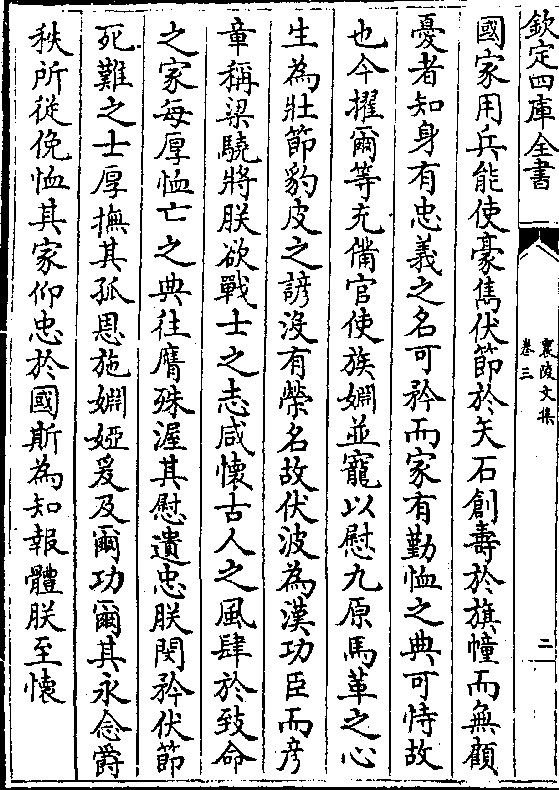 欽定四庫全書
襄陵文集
卷三
二
國家用兵能使豪雋伏節於矢石創壽於旗幢而無顧
憂者知身有忠義之名可矜而家有勤恤之典可恃故
也今擢爾等充備官使族婣並寵以慰九原馬革之心
生為壯節豹皮之諺沒有榮名故伏波為漢功臣而彦
章稱梁驍將朕欲戰士之志咸懷古人之風肆於致命
之家每厚恤亡之典往膺殊渥其慰遺忠朕閔矜伏節
死難之士厚撫其孤恩施婣婭爰及爾功爾其永念爵
秩所從俛恤其家仰忠於國斯為知報體朕至懷